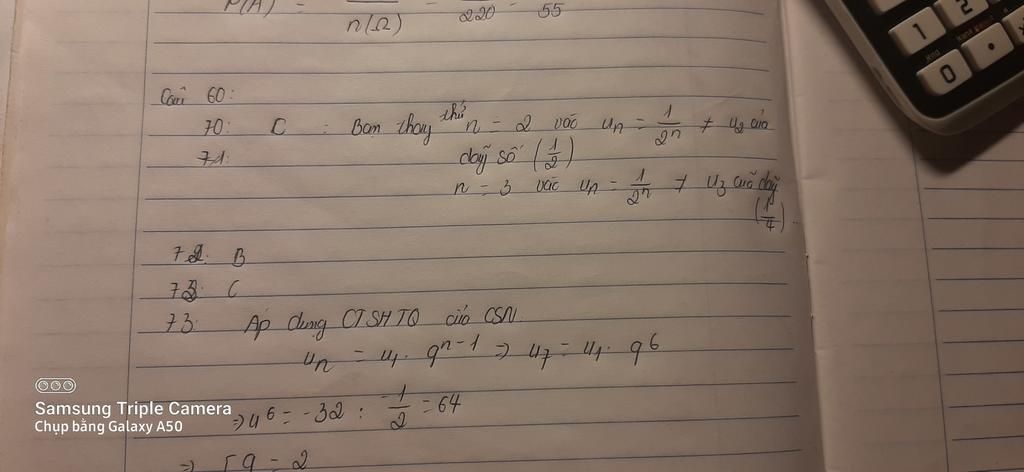 P(A) = n(Ω) = 220 = 55
Câu 60:
70: C : Bạn thay thử n = 2 vào uₙ = 1/2ⁿ ≠ u₂ của
71: dãy số (1/2)
n = 3 vào uₙ = 1/2ⁿ ≠ u₃ của dãy
(1/4)
72: B
73: C
73: Áp dụng CTSHTQ của CSN
uₙ = u₁ . qⁿ⁻¹ => u₇ = u₁ . q⁶
=> u⁶ = -32 : -1/2 = 64
=> [q = 2
Samsung Triple Camera
Chụp bằng Galaxy A50
1
2
0
.